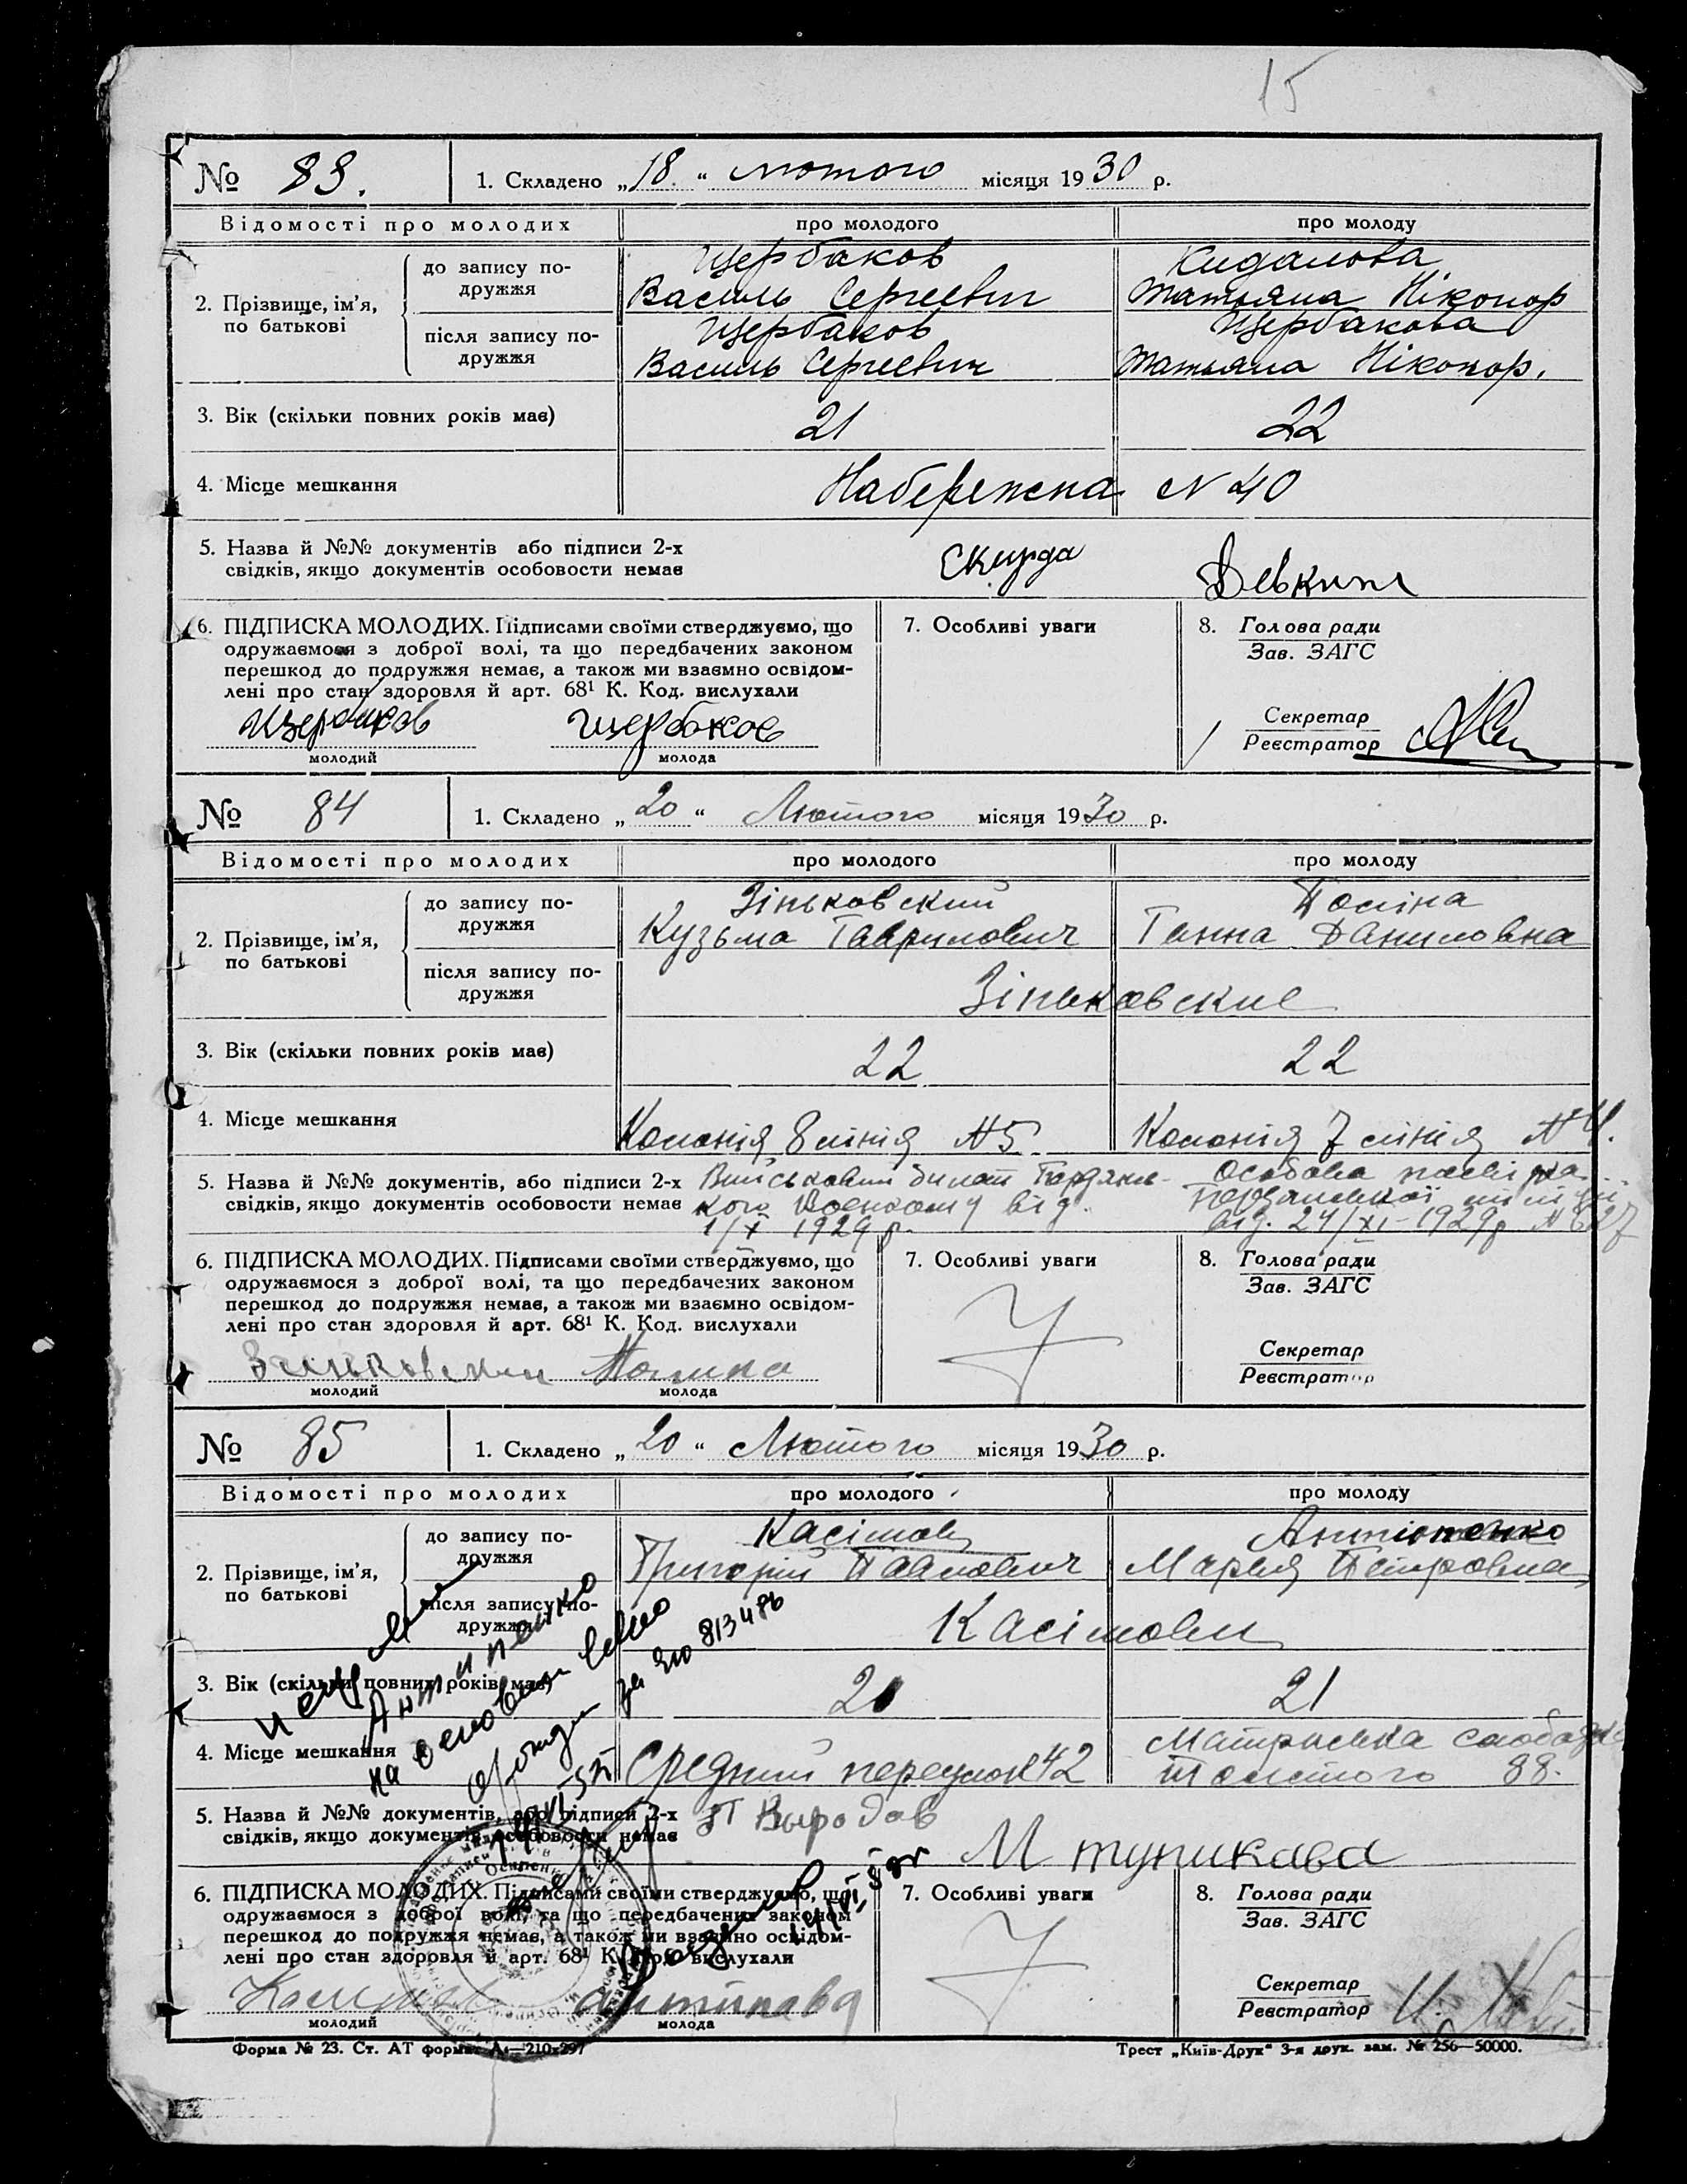 15
№ 83. 1. Складено „18.“ лютого місяця 1930 р.
Відомості про молодих про молодого про молоду
2. Прізвище, ім’я, по батькові
до запису подружжя
Щербаков Кидалова
Василь Сергеевич ТатьянаНіконор
після запису подружжя
Щербаков Щербакова
Василь Сергеевич ТатьянаНіконор.
3. Вік (скільки повних років має) 21 22
4. Місце мешкання Набережна N 40
5. Назва й №№ документів або підписи 2-х
свідків, якщо документів особовости немає Скирда Девкин
6. ПІДПИСКА МОЛОДИХ. Підписами своїми стверджуємо, що
одружаємося з доброї волі, та що передбачених законом
перешкод до подружжя немає, а також ми взаємно освідом-
лені про стан здоровля й арт. 68¹ К. Код. вислухали
Щербаков Щербаков
молодий молода
7. Особливі уваги
8. Голова ради
Зав. ЗАГС
Секретар
Реєстратор
№ 84 1. Складено „20“ Лютого місяця 1930 р.
Відомості про молодих про молодого про молоду
2. Прізвище, ім’я, по батькові
до запису подружжя
Зіньковский Поліна
Кузьма Гаврилович Ганна Даниловна
після запису подружжя
Зіньковские
3. Вік (скільки повних років має) 22 22
4. Місце мешкання Колонія 8 лінія N 5 Колонія 7 лінія N
5. Назва й №№ документів, або підписи 2-х
свідків, якщо документів особовости немає
Військовий билет Бердянс-
кого Военкому від.
1/X 1929 р.
Особова посвідка
Бердянської міліції
від. 24/XI-1929р N 627
6. ПІДПИСКА МОЛОДИХ. Підписами своїми стверджуємо, що
одружаємося з доброї волі, та що передбачених законом
перешкод до подружжя немає, а також ми взаємно освідом-
лені про стан здоровля й арт. 68¹ К. Код. вислухали
Зиньковский Полина
молодий молода
7. Особливі уваги
8. Голова ради
Зав. ЗАГС
Секретар
Реєстратор
№ 85 1. Складено „20“ Лютого місяця 1930 р.
Відомості про молодих про молодого про молоду
2. Прізвище, ім’я, по батькові
до запису подружжя
Касімов Антіпенко
Григорій Павлович Марья Петровна
після запису подружжя
Касімови
3. Вік (скільки повних років має) 20 21
4. Місце мешкання
Средний переулок 42
слободка
Толстого 88.
5. Назва й №№ документів, або підписи 2-х
свідків, якщо документів особовости немає
П Выродов
М тупикава
Антипенко
на основании
за 813486
6. ПІДПИСКА МОЛОДИХ. Підписами своїми стверджуємо, що
одружаємося з доброї волі, та що передбачених законом
перешкод до подружжя немає, а також ми взаємно освідом-
лені про стан здоровля й арт. 68¹ К. Код. вислухали
антипава
молодий молода
7. Особливі уваги
8. Голова ради
Зав. ЗАГС
Секретар
Реєстратор
Форма № 23. Ст. АТ формат А₄—210×297
Трест „Київ-Друк“ 3-я друк. зам. № 256—50000.